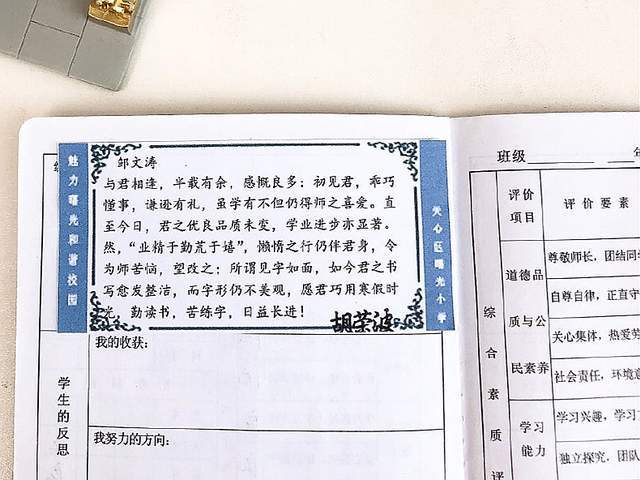 魅力曙光和谐校园
邹文涛
与君相逢，半载有余，感慨良多：初见君，乖巧
懂事，谦逊有礼，虽学有不但仍得师之喜爱。直
至今日，君之优良品质未变，学业进步亦显著。
然，“业精于勤荒于嬉”，懒惰之行仍伴君身，令
为师苦恼，望改之；所谓见字如面，如今君之书
写愈发整洁，而字形仍不美观，愿君巧用寒假时
光，勤读书，苦练字，日益长进！
胡荣波
天心区曙光小学
学生的反思
我的收获：
我努力的方向：
班级
评价项目
评价要素
综合素质评
道德品质与公民素养
尊敬师长，团结同
自尊自律，正直守
关心集体，热爱劳
社会责任，环境意
学习能力
学习兴趣，学习
独立探究，团队